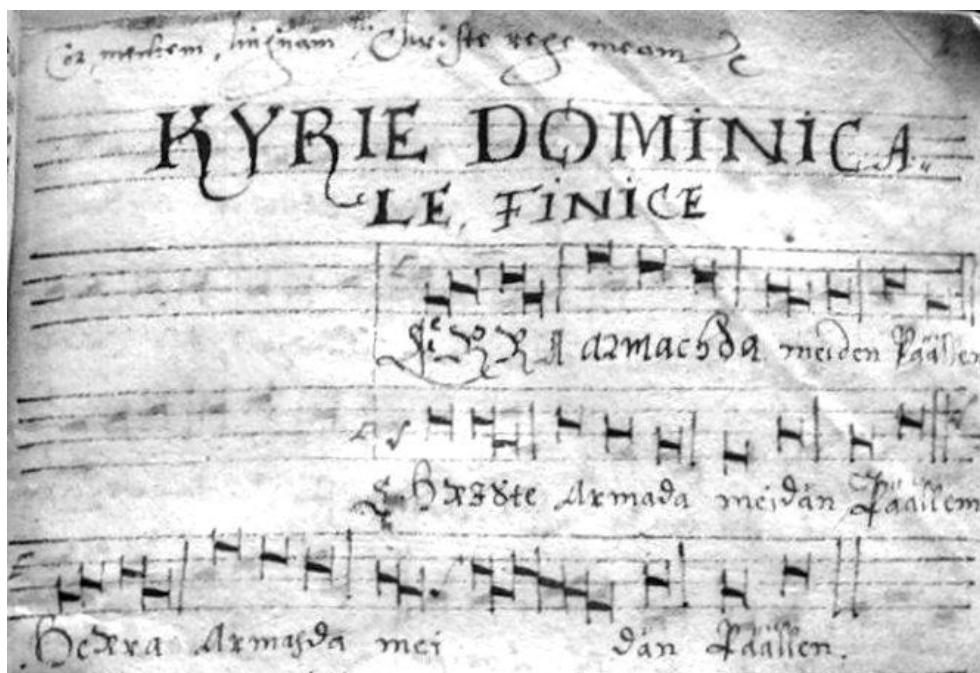 Cor, mentem, linguam, Christe rege meam
KYRIE DOMINICA
LE, FINICE
HERRA armachda meiden Päällen
Christe Armada meidän Päällem
Herra Armahda mei dän Päällen.